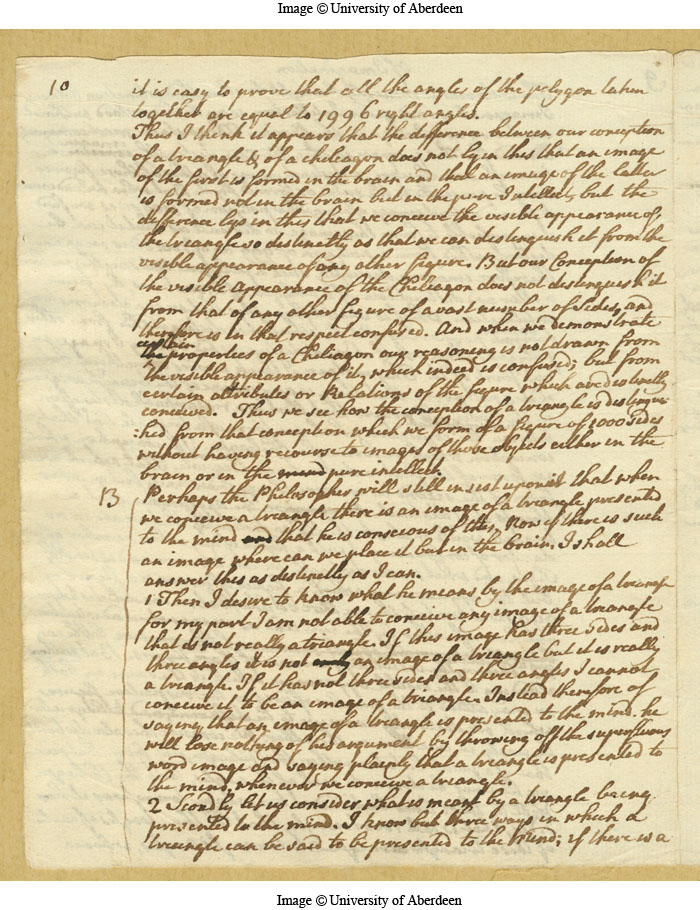 Image © University of Aberdeen
10
it is easy to prove that all the angles of the polygon taken
together are equal to 1996 right angles.
Thus I think it appears that the difference between our conception
of a triangle & of a chileagon does not ly in this that an image
of the first is formed in the brain and that an image of the latter
is formed not in the brain but in the pure Intellect, but the
difference lys in this that we conceive the visible appearance of
the triangle so distinctly as that we can distinguish it from the
visible appearance of any other figure. But our Conception of
the visible Appearance of the Chileagon does not distinguish it
from that of any other figure of a vast number of sides, and
therefore is in that respect confused. And when we demonstrate
certain
the properties of a Chiliagon our reasoning is not drawn from
the visible appearance of it, which indeed is confused; but from
certain attributes or Relations of the figure which are distinctly
conceived. Thus we see how the conception of a triangle is distingui
:hed from that conception which we form of a figure of 1000 sides
without having recourse to images of those objects either in the
brain or in the mind pure intellect.
13 Perhaps the Philosopher will still insist upon it that when
we conceive a triangle there is an image of a triangle presented
to the mind and that he is conscious of this, Now if there is such
an image where can we place it but in the brain. I shall
answer this as distinctly as I can.
1 Then I desire to know what he means by the image of a triangle
for my part I am not able to conceive any image of a triangle
that is not really a triangle. If this image has three sides and
three angles it is not only an image of a triangle but it is really
a triangle. If it has not three sides and three angles I cannot
conceive it to be an image of a triangle. Instead therefore of
saying that an image of a triangle is presented to the mind. he
will lose nothing of his argument by throwing off the superfluous
word image and saying plainly that a triangle is presented to
the mind, whenever we conceive a triangle.
2 Scondly let us consider what is meant by a triangle being
presented to the mind. I know but three ways in which a
treiangle can be said to be presented to the mind; if there is a
Image © University of Aberdeen